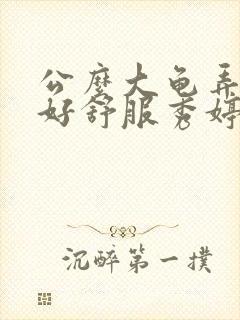 公麽大龟弄
好舒服秀婷
沉醉第一撲